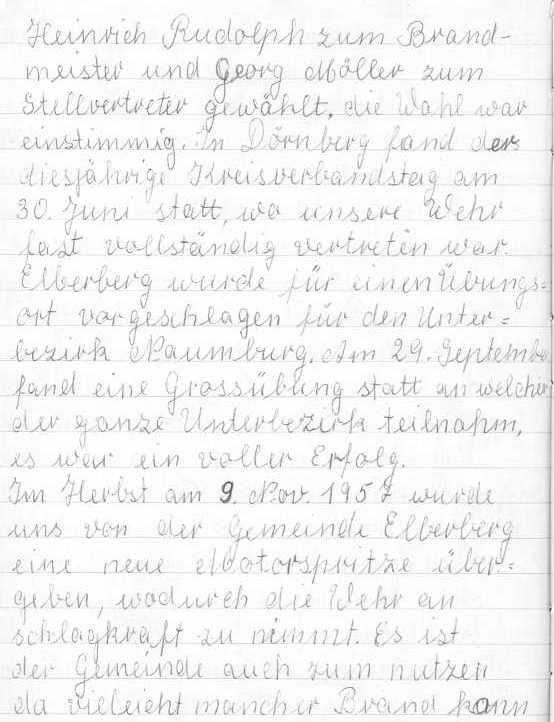 Heinrich Rudolph zum Brand-
meister und Georg Möller zum
Stellvertreter gewählt, die Wahl war
einstimmig. In Dörnberg fand der
diesjährige Kreisverbandstag am
30. Juni statt, wo unsere Wehr
fast vollständig vertreten war.
Elberberg wurde für einen Übungs=
ort vorgeschlagen für den Unter=
bezirk Naumburg. Am 29. Septembe
fand eine Grossübung statt an welcher
der ganze Unterbezirk teilnahm,
es war ein voller Erfolg.
Im Herbst am 9. Nov. 1957 wurde
uns von der Gemeinde Elberberg
eine neue Motorspritze über=
geben, wodurch die Wehr an
schlagkraft zu nimmt. Es ist
der Gemeinde auch zum nutzen
da vieleicht mancher Brand kann